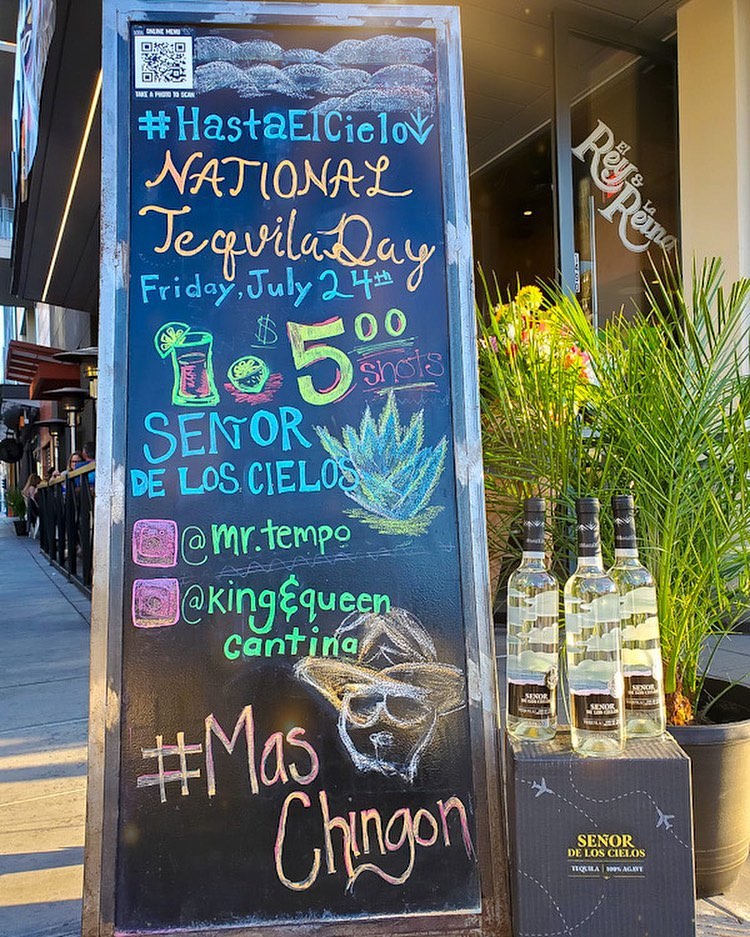 ONLINE MENU
TAKE A PHOTO TO SCAN
#HastaElCielo
NATIONAL
Tequila Day
Friday, July 24th
$5.00
shots
SEÑOR
DE LOS CIELOS
@mr.tempo
@king&queen
cantina
#Mas
Chingon
El
Rey &
La
Reina
SEÑOR
DE LOS CIELOS
SEÑOR
DE LOS CIELOS
TEQUILA
SEÑOR
DE LOS CIELOS
SEÑOR
DE LOS CIELOS
TEQUILA | 100% AGAVE